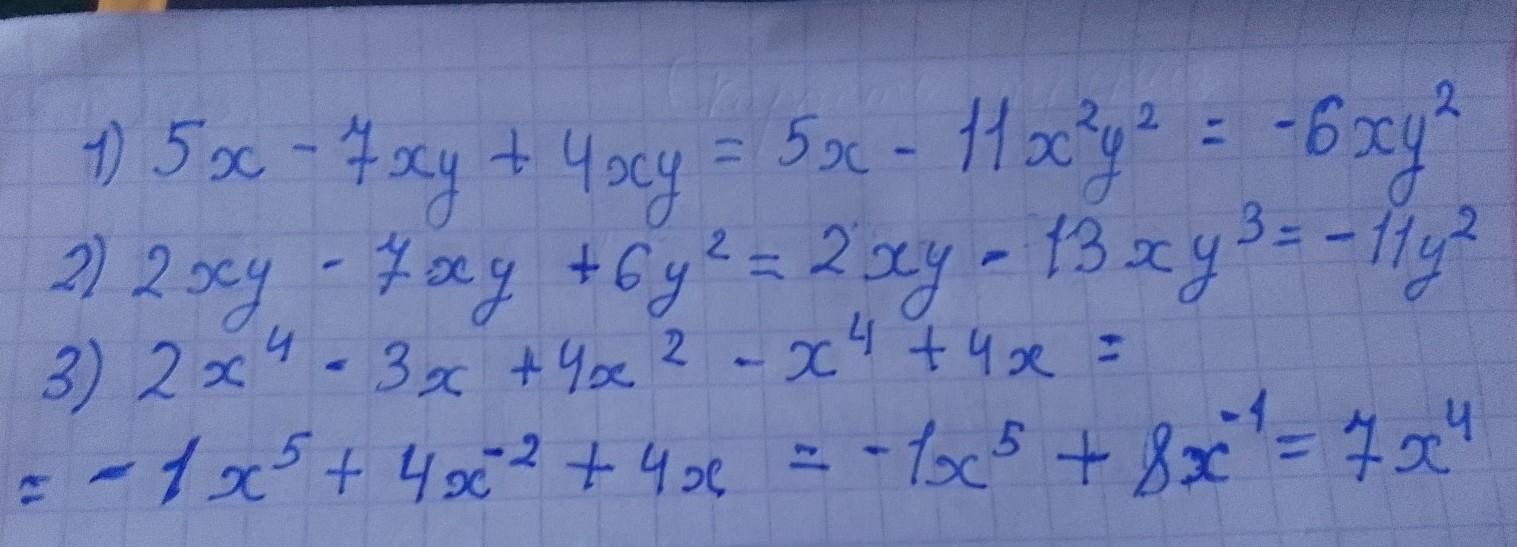 1) 5x - 7xy + 4xy = 5x - 11x²y² = -6xy²
2) 2xy - 7xy + 6y² = 2xy - 13xy³ = -11y²
3) 2x⁴ - 3x + 4x² - x⁴ + 4x =
= -1x⁵ + 4x⁻² + 4x = -1x⁵ + 8x⁻¹ = 7x⁴